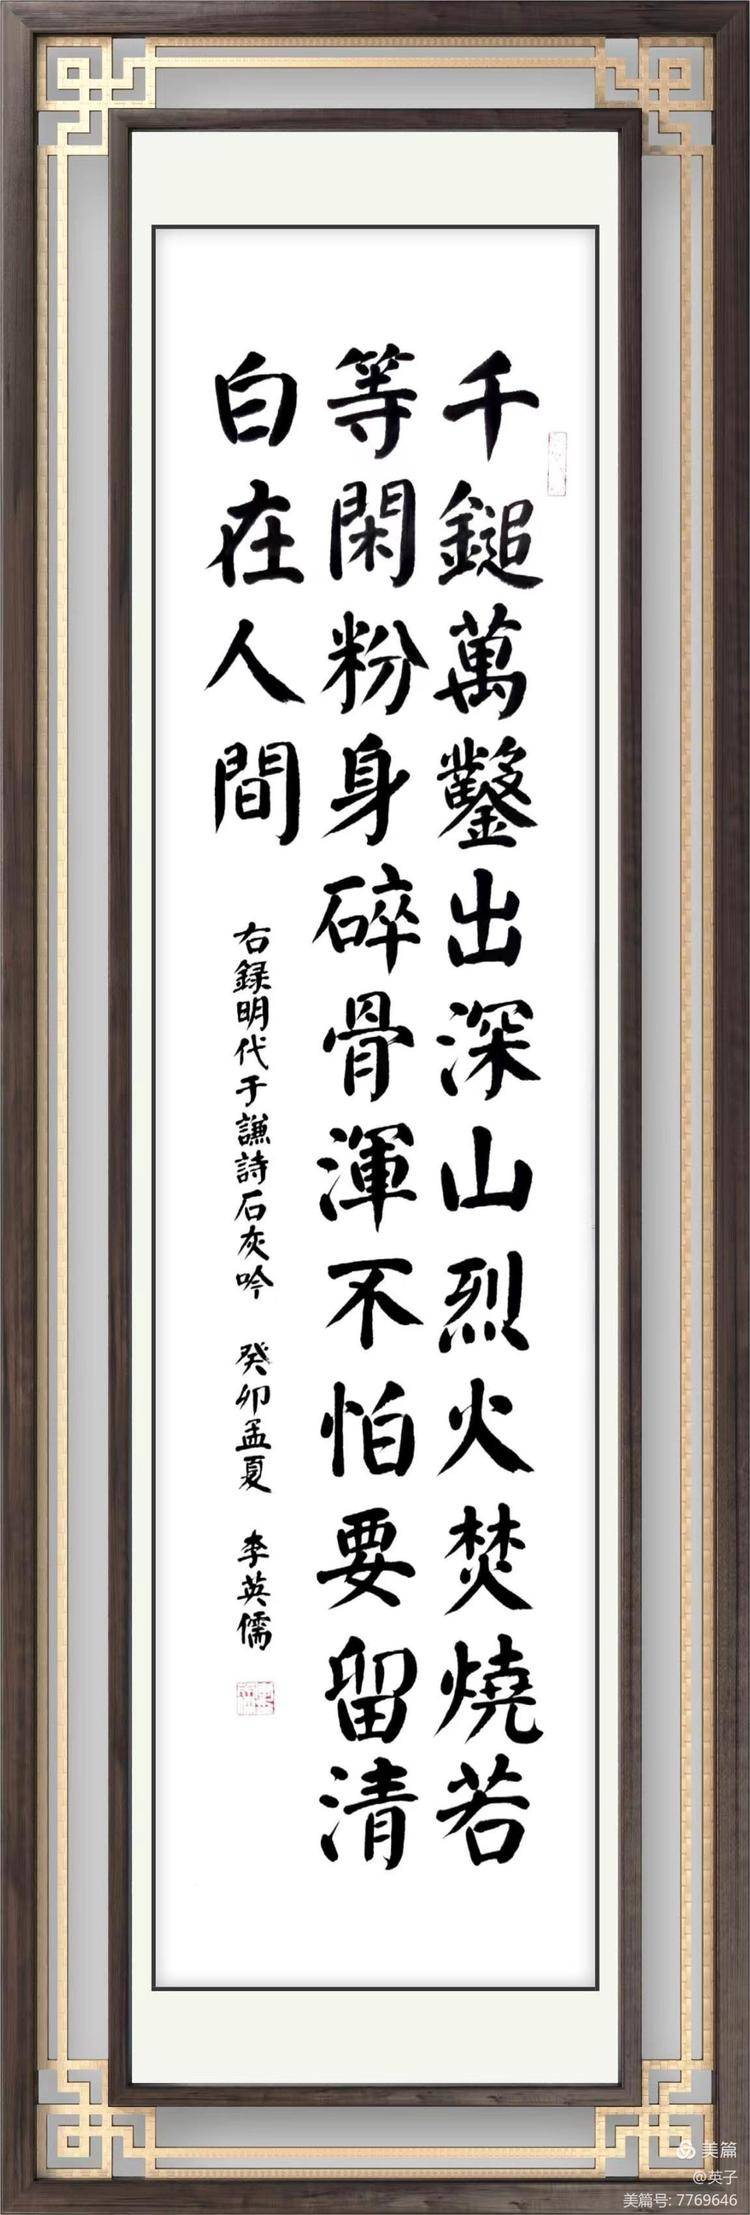 千鎚萬鑿出深山烈火焚燒若
等閑粉身碎骨渾不怕要留清
白在人間
右録明代于謙詩石灰吟 癸卯孟夏 李英儒
美篇
@英子
美篇号: 7769646